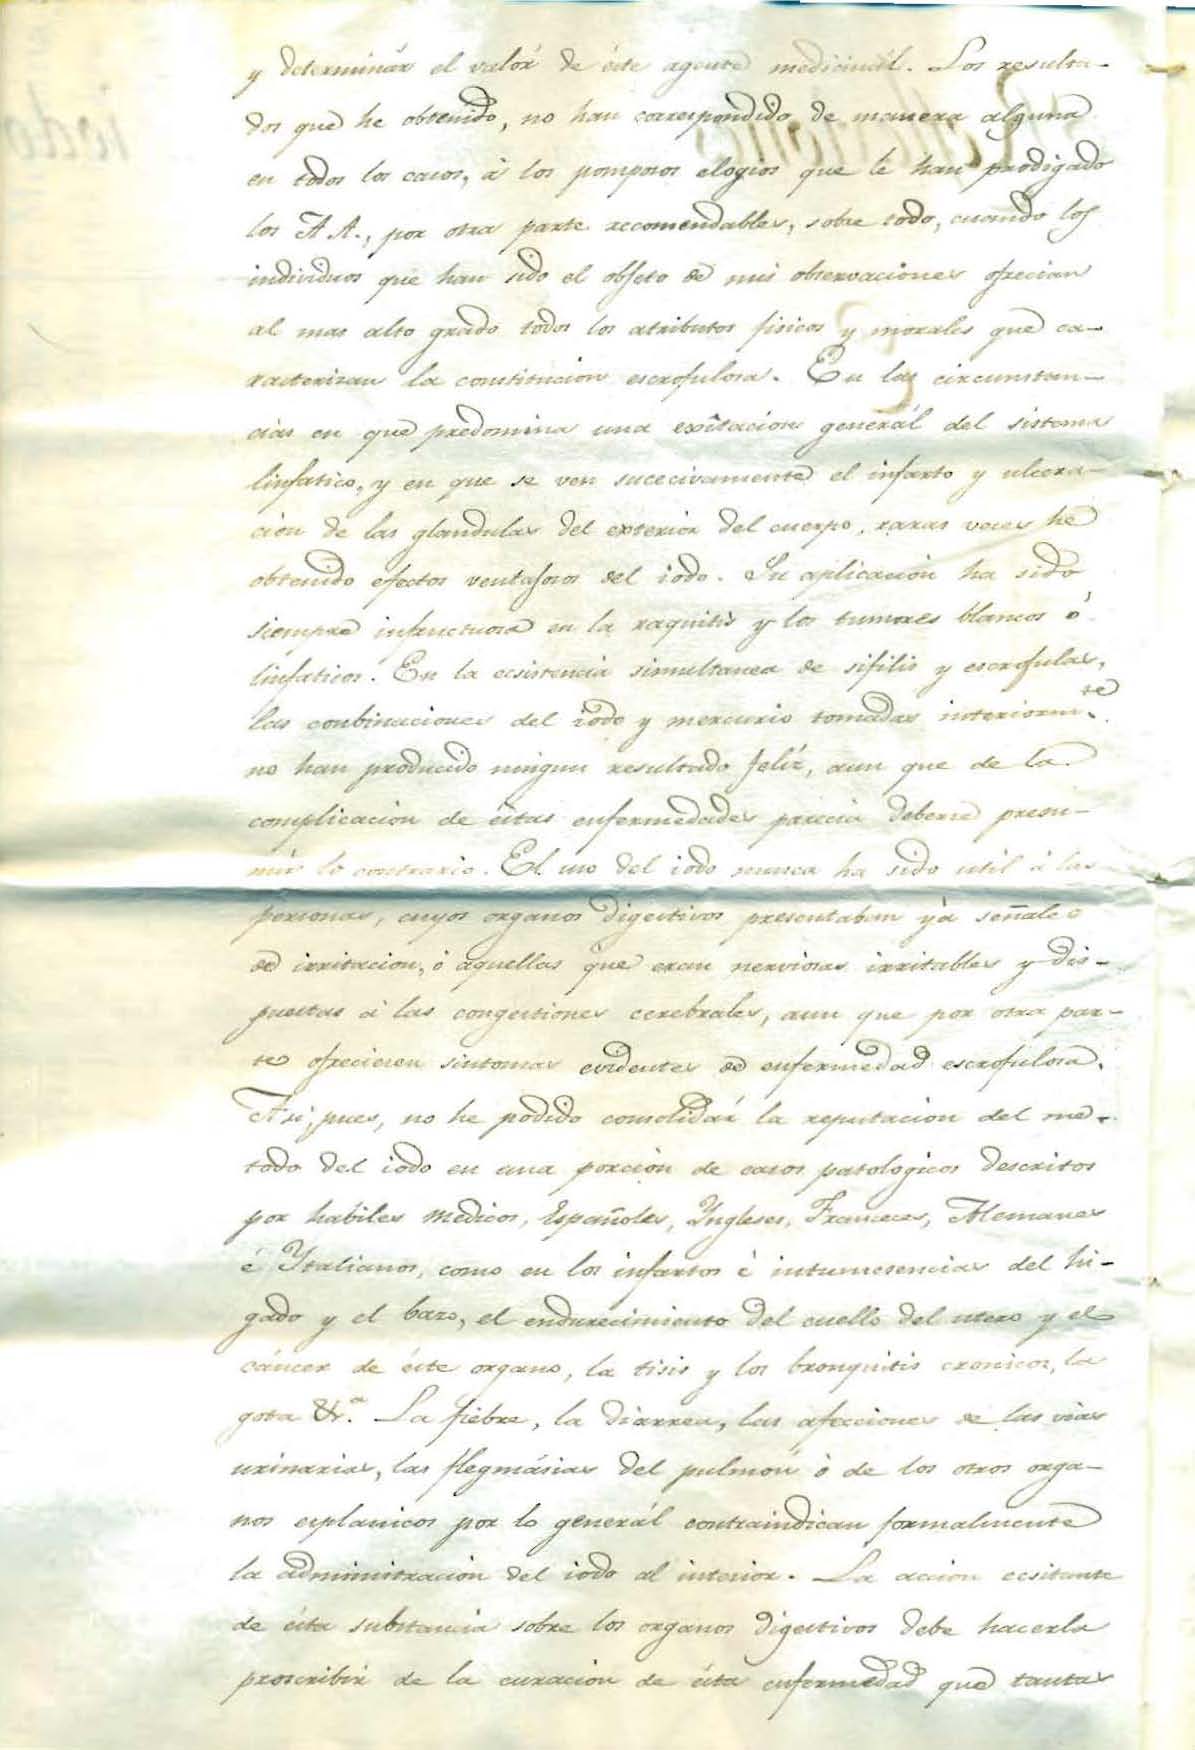 y determinár el valór de éste agente medicinál. Los resulta-
dos que he obtenido, no han correspondido de manera alguna
en todos los casos, à los pomposos elogios que le han prodigado
los A A., por otra parte recomendables, sobre todo, cuando los
individuos que han sido el objeto de mis observaciones ofrecian
al mas alto grado todos los atributos fisicos y morales que ca-
racterizan la constitucion escrofulosa. En las circunstan-
cias en que predomina una exîtacion generál del sistema
linfatico, y en que se ven sucecivamente el infarto y ulcera-
cion de las glandulas del exterior del cuerpo, raras veces he
obtenido efectos ventajosos del iodo. Su aplicacion ha sido
siempre infructuosa en la raquitis y los tumores blancos ó
linfaticos. En la ecsistencia simultanea de sifilis y escrofulas,
las conbinaciones del iodo y mercurio tomadas interiorm.te
no han producido ningun resultado feliz, aun que de la
complicacion de éstas enfermedades parecia deberse presu-
mir lo contrario. El uso del iodo nunca ha sido util á las
personas, cuyos organos digestivos presentaban yá señales
de irritacion, ó aquellas que eran nerviosas irritables y dis-
puestas á las congestiones cerebrales, aun que por otra par-
te ofreciesen sintomas evidentes de enfermedad escrofulosa.
Asi, pues, no he podido consolidár la reputacion del me-
todo del iodo en una porcion de casos patologicos descritos
por habiles medicos, Españoles, Yngleses, Franceces, Alemanes
é Ytalianos, como en los infartos è intumesencias del hi-
gado y el bazo, el endurecimiento del cuello del utero y el
cáncer de éste organo, la tisis y los bronquitis cronicos, la
gota &.a La fiebre, la diarrea, las afecciones de las vias
urinarias, las flegmásias del pulmón ò de los otros orga-
nos esplanicos por lo generál contraindican formalmente
la administracion del iodo al interior. La accion ecsitante
de ésta substancia sobre los organos digestivos debe hacerla
proscribir de la curacion de ésta enfermedad que tantas